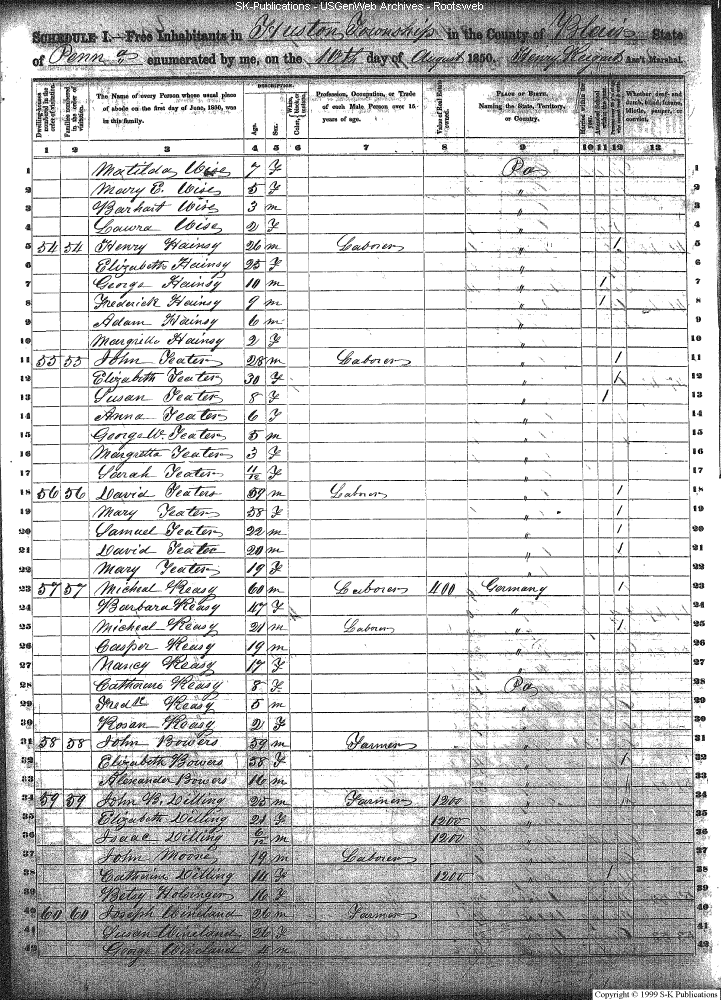 SK-Publications - USGenWeb Archives - Rootsweb
SCHEDULE I.—Free Inhabitants in Huston Township in the County of Blair State
of Penna enumerated by me, on the 10th day of August 1850. Henry Ass't Marshal.
DESCRIPTION.
Dwelling-houses numbered in the order of visitation.
Families numbered in the order of visitation.
The Name of every Person whose usual place of abode on the first day of June, 1850, was in this family.
Age.
Sex.
Color, White, black, or mulatto.
Profession, Occupation, or Trade of each Male Person over 15 years of age.
Value of Real Estate owned.
PLACE OF BIRTH. Naming the State, Territory, or Country.
Married within the year.
Attended School within the year.
Whether deaf and dumb, blind, insane, idiotic, pauper, or convict.
1 2 3 4 5 6 7 8 9 10 11 12 13
1 Matilda Wise 7 F Pa 1
2 Mary E. Wise 5 F " 2
3 Barhart Wise 3 m " 3
4 Laura Wise 2 F " 4
5 54 54 Henry Hainsy 26 m Laborer " 1 5
6 Elizabeth Hainsy 25 F " 6
7 George Hainsy 10 m " 1 7
8 Frederick Hainsy 9 m " 1 8
9 Adam Hainsy 6 m " 9
10 Margrilla Hainsy 2 F " 10
11 55 55 John Teater 28 m Laborer " 1 11
12 Elizabeth Teater 30 F " 1 12
13 Susan Teater 8 F " 1 13
14 Anna Teater 6 F " 14
15 George W. Teater 5 m " 15
16 Margretta Teater 3 F " 16
17 Sarah Teater 11/12 F " 17
18 56 56 David Teaters 59 m Laborer " 1 18
19 Mary Teater 58 F " 1 19
20 Samuel Teater 22 m " 1 20
21 David Teater 20 m " 1 21
22 Mary Teater 19 F " 22
23 57 57 Micheal Keasy 60 m Laborer 400 Germany 1 23
24 Barbara Keasy 47 F " 24
25 Micheal Keasy 21 m Laborer " 1 25
26 Casper Keasy 19 m " 26
27 Nancy Keasy 17 F " 27
28 Catharine Keasy 8 F Pa 28
29 Fredk Keasy 5 m " 29
30 Rosan Keasy 2 F " 30
31 58 58 John Bowers 59 m Farmer " 31
32 Elizabeth Bowers 58 F " 1 32
33 Alexander Bowers 16 m " 33
34 59 59 John B. Dilling 25 m Farmer 1200 " 34
35 Elizabeth Dilling 21 F 1200 " 35
36 Isaac Dilling 6/12 m 1200 " 36
37 John Moore 19 m Laborer " 37
38 Catharine Dilling 14 F 1200 " 1 38
39 Betsy Holsinger 16 F " 39
40 60 60 Joseph Wineland 26 m Farmer " 40
41 Susan Wineland 26 F " 41
42 George Wineland 4 m " 42
Copyright © 1999 S-K Publications